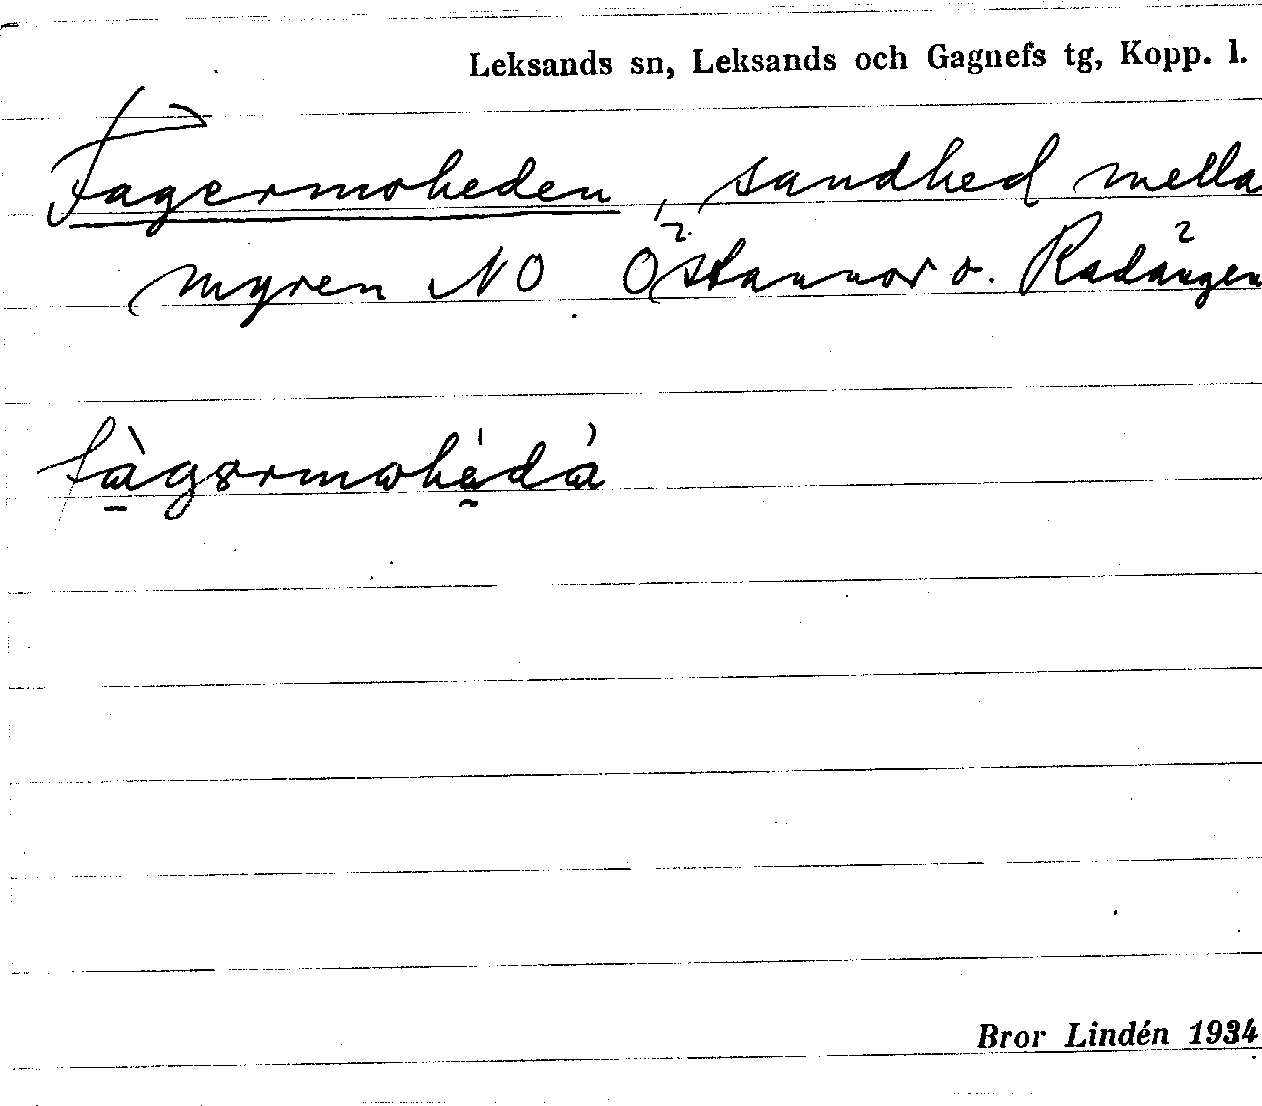 Leksands sn, Leksands och Gagnefs tg, Kopp. l.
Fagermoheden, sandhed mella
myren NO Östannor o. Radängen
fàgərmohédà
Bror Lindén 1934